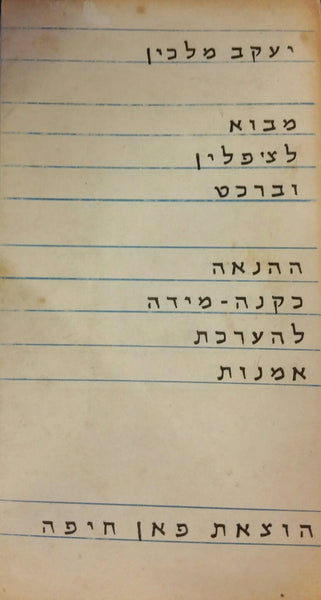 יעקב מלכין
מבוא
לצ׳פלין
וברכט
ההנאה
כקנה-מידה
להערכת
אמנות
הוצאת פאן חיפה